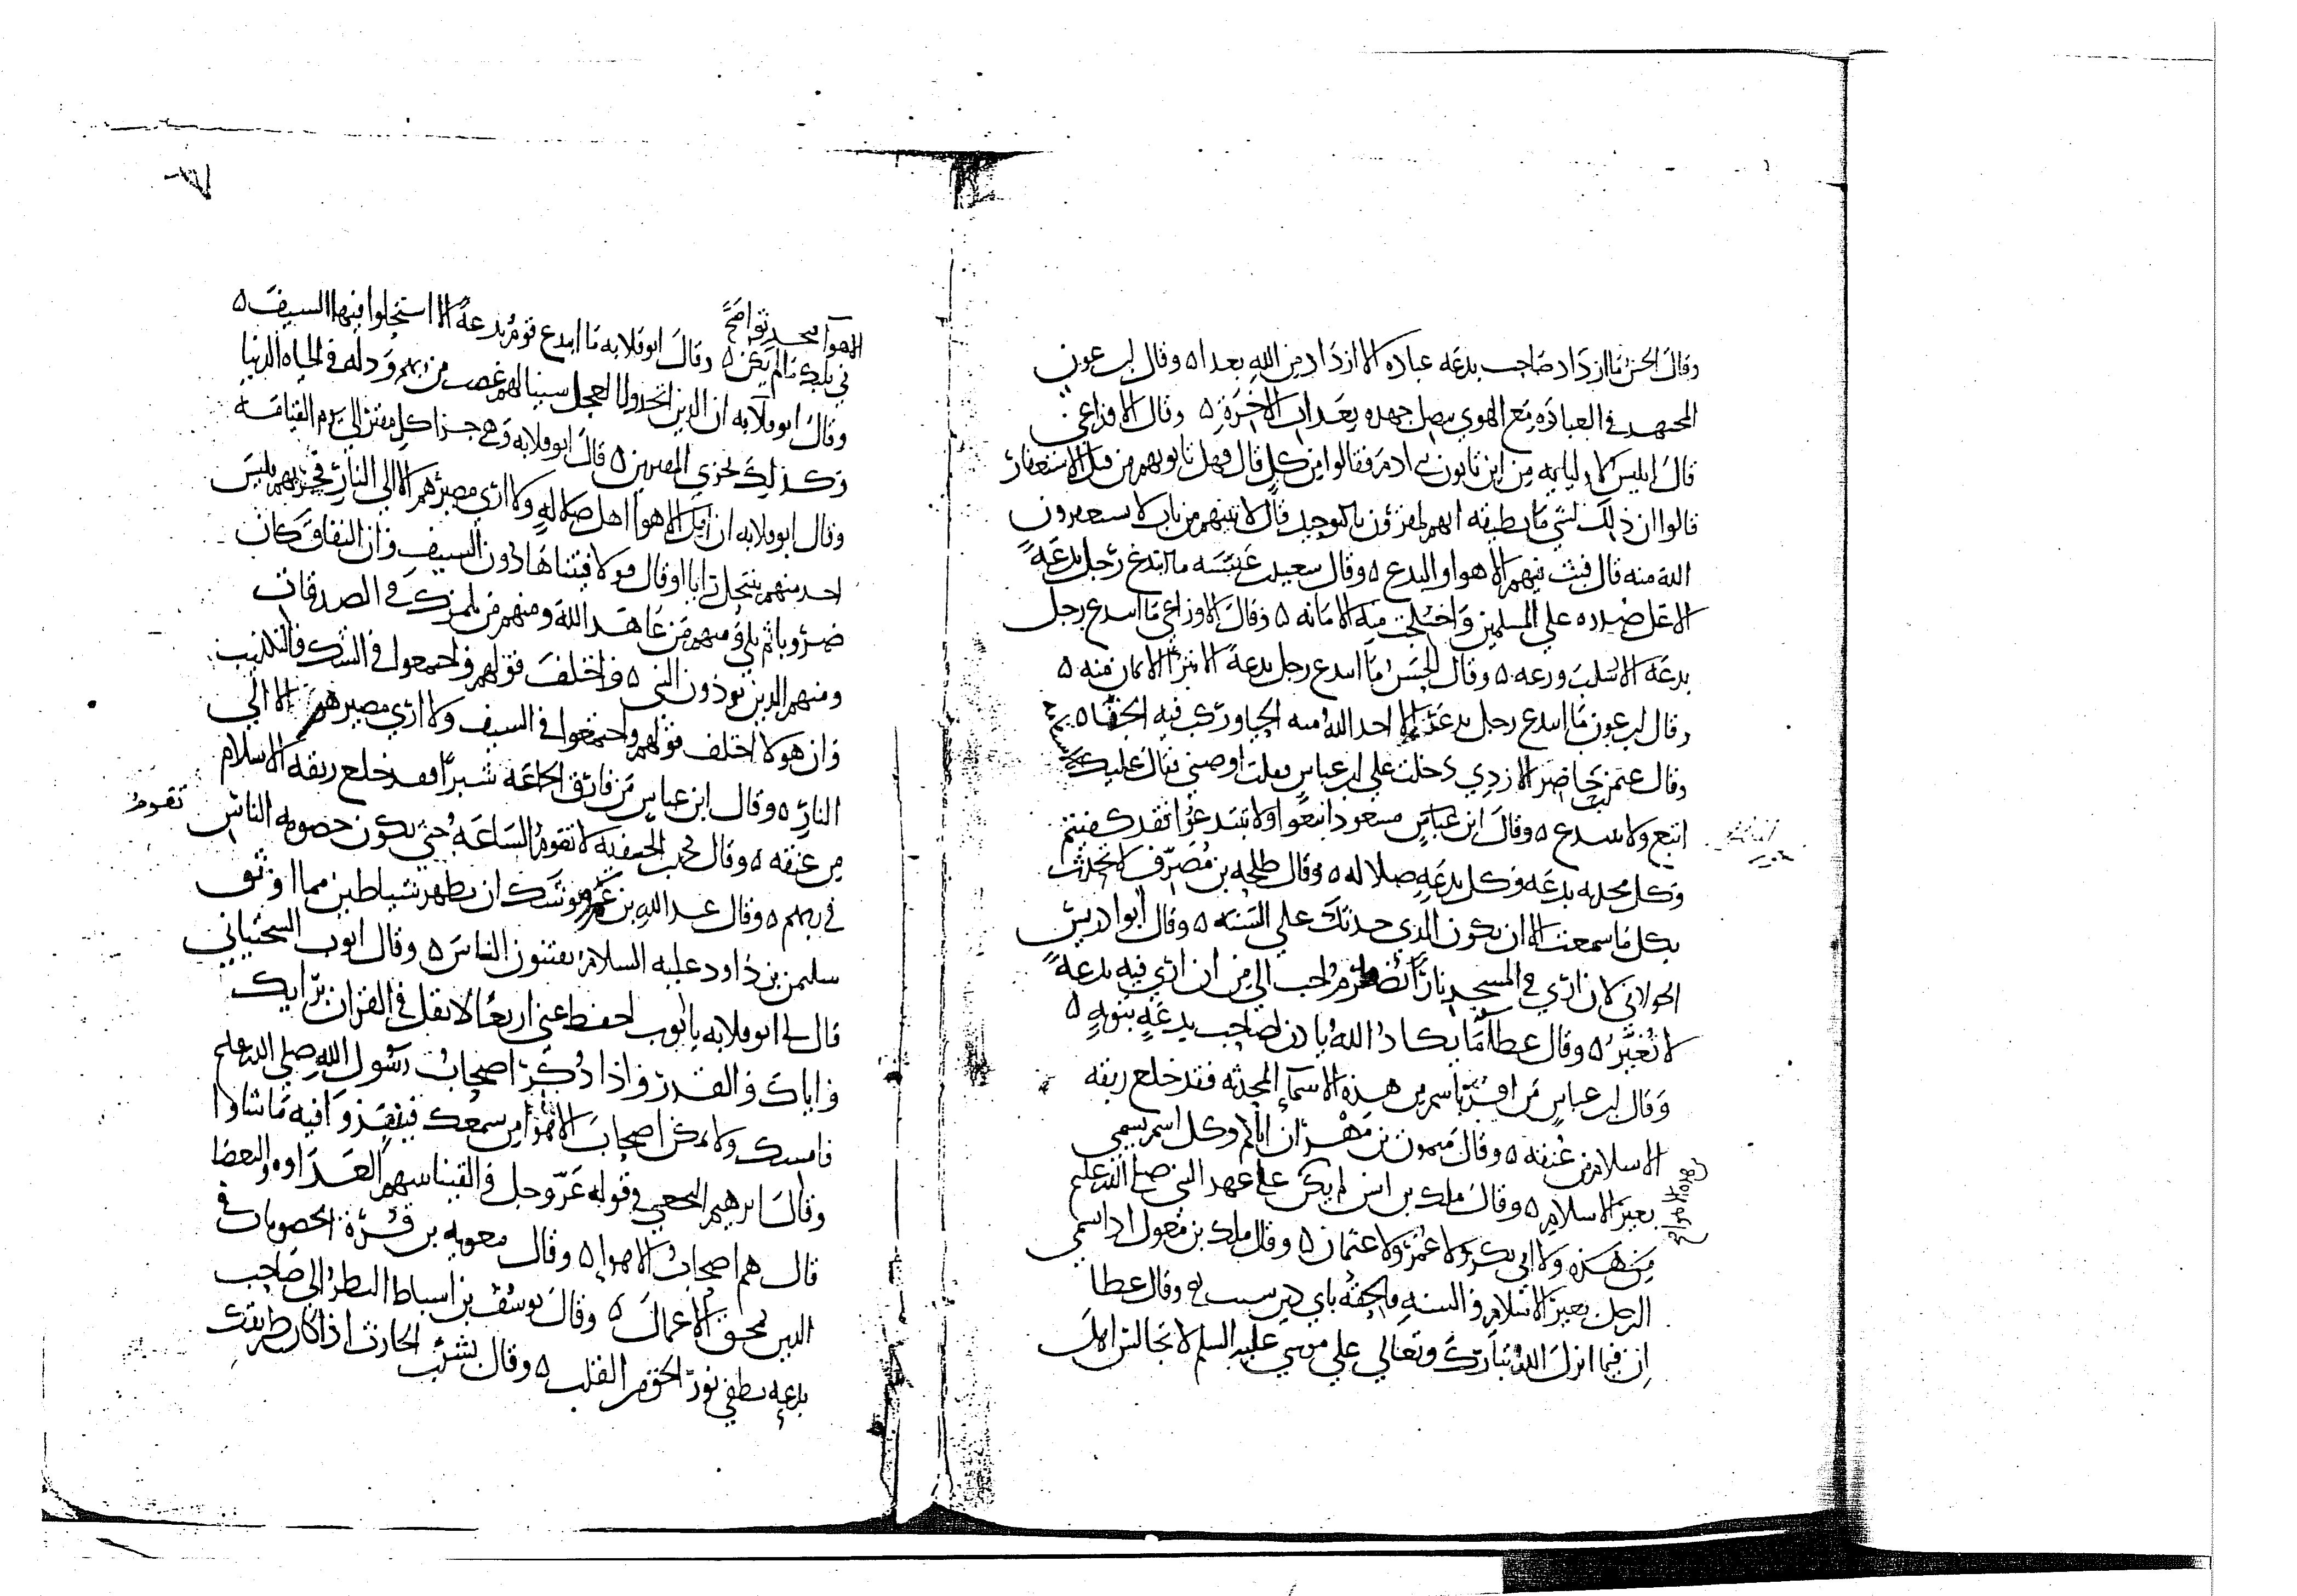 وقال الحسن ما ازداد صاحب بدعه عباده الا ازداد من الله بعدا ٥ وقال ابن عون
المجتهد في العباده مع الهوي يتصل جهده بعذاب الاخرة ٥ وقال الاوزاعي
قال ابليس لاوليايه من اين تاتون بني ادم فقالوا من كل قال فهل تاتونهم من قبل الاستغفار
قالوا ان ذلك لشي ما نطيقه انهم لمقرون بالتوحيد قال لاتينهم من باب لا يستغفرون
الله منه قال فبث فيهم الاهوا والبدع ٥ وقال سعيد بن عنبسه ما ابتدع رجل بدعة
الا غل صدره علي المسلمين واختلجت منه الامانه ٥ وقال الاوزاعي ما ابتدع رجل
بدعه الا سلب ورعه ٥ وقال الحسن ما ابتدع رجل بدعة الا تبرا الايمان منه ٥
وقال ابن عون ما ابتدع رجل بدعة الا اخذ الله منه الحيا وركب فيه الجفا ٥
وقال عثمن بن حاضر الازدي دخلت علي ابن عباس فقلت اوصني فقال عليك بالاستقامه
اتبع ولا تبتدع ٥ وقال ابن عباس مسعود اتبعوا ولا تبتدعوا فقد كفيتم
وكل محدثه بدعه وكل بدعه ضلاله ٥ وقال طلحه بن مصرف لا تحدث
بكل ما سمعت الا ان يكون الذي حدثك علي السنه ٥ وقال ابو ادريس
الخولاني لان اري في المسجد نارا تضطرم احب الي من ان اري فيه بدعة
لا تغير ٥ وقال عطا ما يكاد الله ياذن لصاحب بدعه بتوبه ٥
وقال ابن عباس من اقر باسم من هذه الاسماء المحدثه فقد خلع ربقه
الاسلام من عنقه ٥ وقال ميمون بن مهران اياكم وكل اسم يسمي
بغير الاسلام ٥ وقال ملك بن انس لم يكن علي عهد النبي صلى الله عليه
من هذه ولا ابي بكر ولا عمر ولا عثمان ٥ وقال ملك بن مغول اذا تسمي
الرجل بغير الاسلام والسنه فالحقه باي دين شيت ٥ وقال عطا
ان فيما انزل الله تبارك وتعالي علي موسي عليه السلم لا تجالس اهل
الاهوا فيحدثوا
في قلبك ما لم يكن ٥ وقال ابو قلابه ما ابتدع قوم بدعة الا استحلوا فيها السيف ٥
وقال ابو قلابه ان الذين اتخذوا العجل سينالهم غضب من ربهم وذله في الحياه الدنيا
وكذلك نجزي المفترين ٥ قال ابو قلابه وهي جزا كل مفتر الي يوم القيامة
وقال ابو قلابه ان اهل الاهوا اهل ضلاله ولا اري مصيرهم الا الي النار فجربهم فليس
احد منهم ينتحل رايا او قال قولا فيتناها دون السيف وان النفاق كان
ضروبا ثم تلي ومنهم من عاهد الله ومنهم من يلمزك في الصدقات
ومنهم الذين يوذون النبي ٥ واختلف قولهم واجتمعوا في الشك والتكذيب
وان هولا اختلف قولهم واجتمعوا في السيف ولا اري مصيرهم الا الي
النار ٥ وقال ابن عباس من فارق الجماعه شبرا فقد خلع ربقه الاسلام
من عنقه ٥ وقال محمد بن الحنفيه لا تقوم الساعه حتي تكون خصومه الناس
تقوم
في ربهم ٥ وقال عبد الله بن عمر يوشك ان تظهر شياطين مما اوثق
سليمن بن داود عليه السلام يفتنون الناس ٥ وقال ايوب السختياني
قال لي ابو قلابه يا ايوب احفظ عني اربعا لا تقل في القران برايك
واياك والقدر واذا ذكر اصحاب رسول الله صلى الله عليه
فامسك ولا تمكن اصحاب الاهوا من سمعك فينقذوا فيه ما شاوا
وقال ابرهيم النخعي في قوله عز وجل فالقينا بينهم العداوه والبغضا
قال هم اصحاب الاهوا ٥ وقال معويه بن قرة الخصومات في
الدين تمحق الاعمال ٥ وقال يوسف بن اسباط النظر الي صاحب
بدعه يطفي نور الحق من القلب ٥ وقال بشر بن الحارث اذا كان طريقك